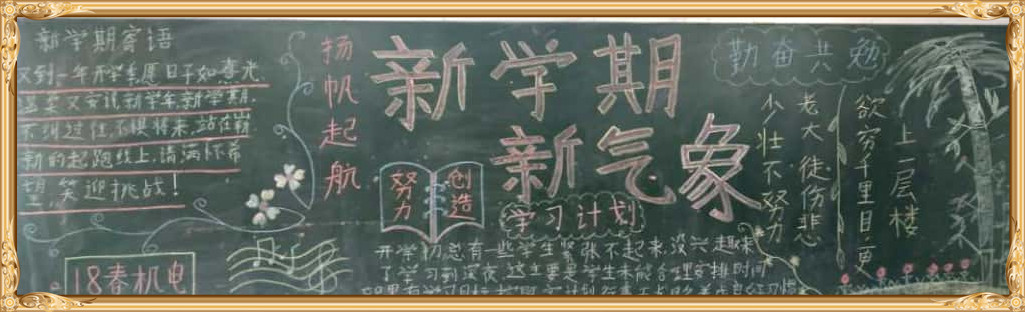 新学期寄语
又到一年开学季,愿日子如春光
温柔又安详,新学年,新学期,
不纠过往,不惧将来,站在崭
新的起跑线上,请满怀希
望,笑迎挑战!
18春机电
扬帆起航
新学期
新气象
努力
创造
学习计划
开学初总有一些学生紧张不起来,没兴趣
了学习到深夜,这主要是学生未能合理安排时间
勤奋共勉
少壮不努力
老大徒伤悲
欲穷千里目更
上一层楼